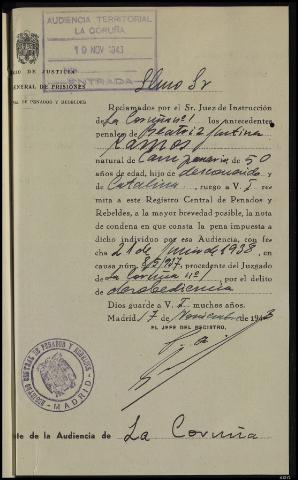 AUDIENCIA TERRITORIAL
LA CORUÑA
19 NOV 1943
ENTRADA
RIO DE JUSTICIA
GENERAL DE PRISIONES
AL DE PENADOS Y REBELDES
Ilmo Sr
Reclamados por el Sr. Juez de Instrucción
de La Coruña nº 1 los antecedentes
penales de Beatriz
Ramos
natural de de 50
años de edad, hijo de desconocido y
de Catalina, ruego a V. I. re-
mita a este Registro Central de Penados y
Rebeldes, a la mayor brevedad posible, la nota
de condena en que consta la pena impuesta a
dicho individuo por esa Audiencia, con fe-
cha 21 de Junio de 1938, en
causa núm. 815/937, procedente del Juzgado
de La Coruña nº 1 por el delito
de desobediencia
Dios guarde a V. I. muchos años.
Madrid, 17 de Noviembre de 1943
EL JEFE DEL REGISTRO,
REGISTRO CENTRAL DE PENADOS Y REBELDES
MADRID
te de la Audiencia de La Coruña